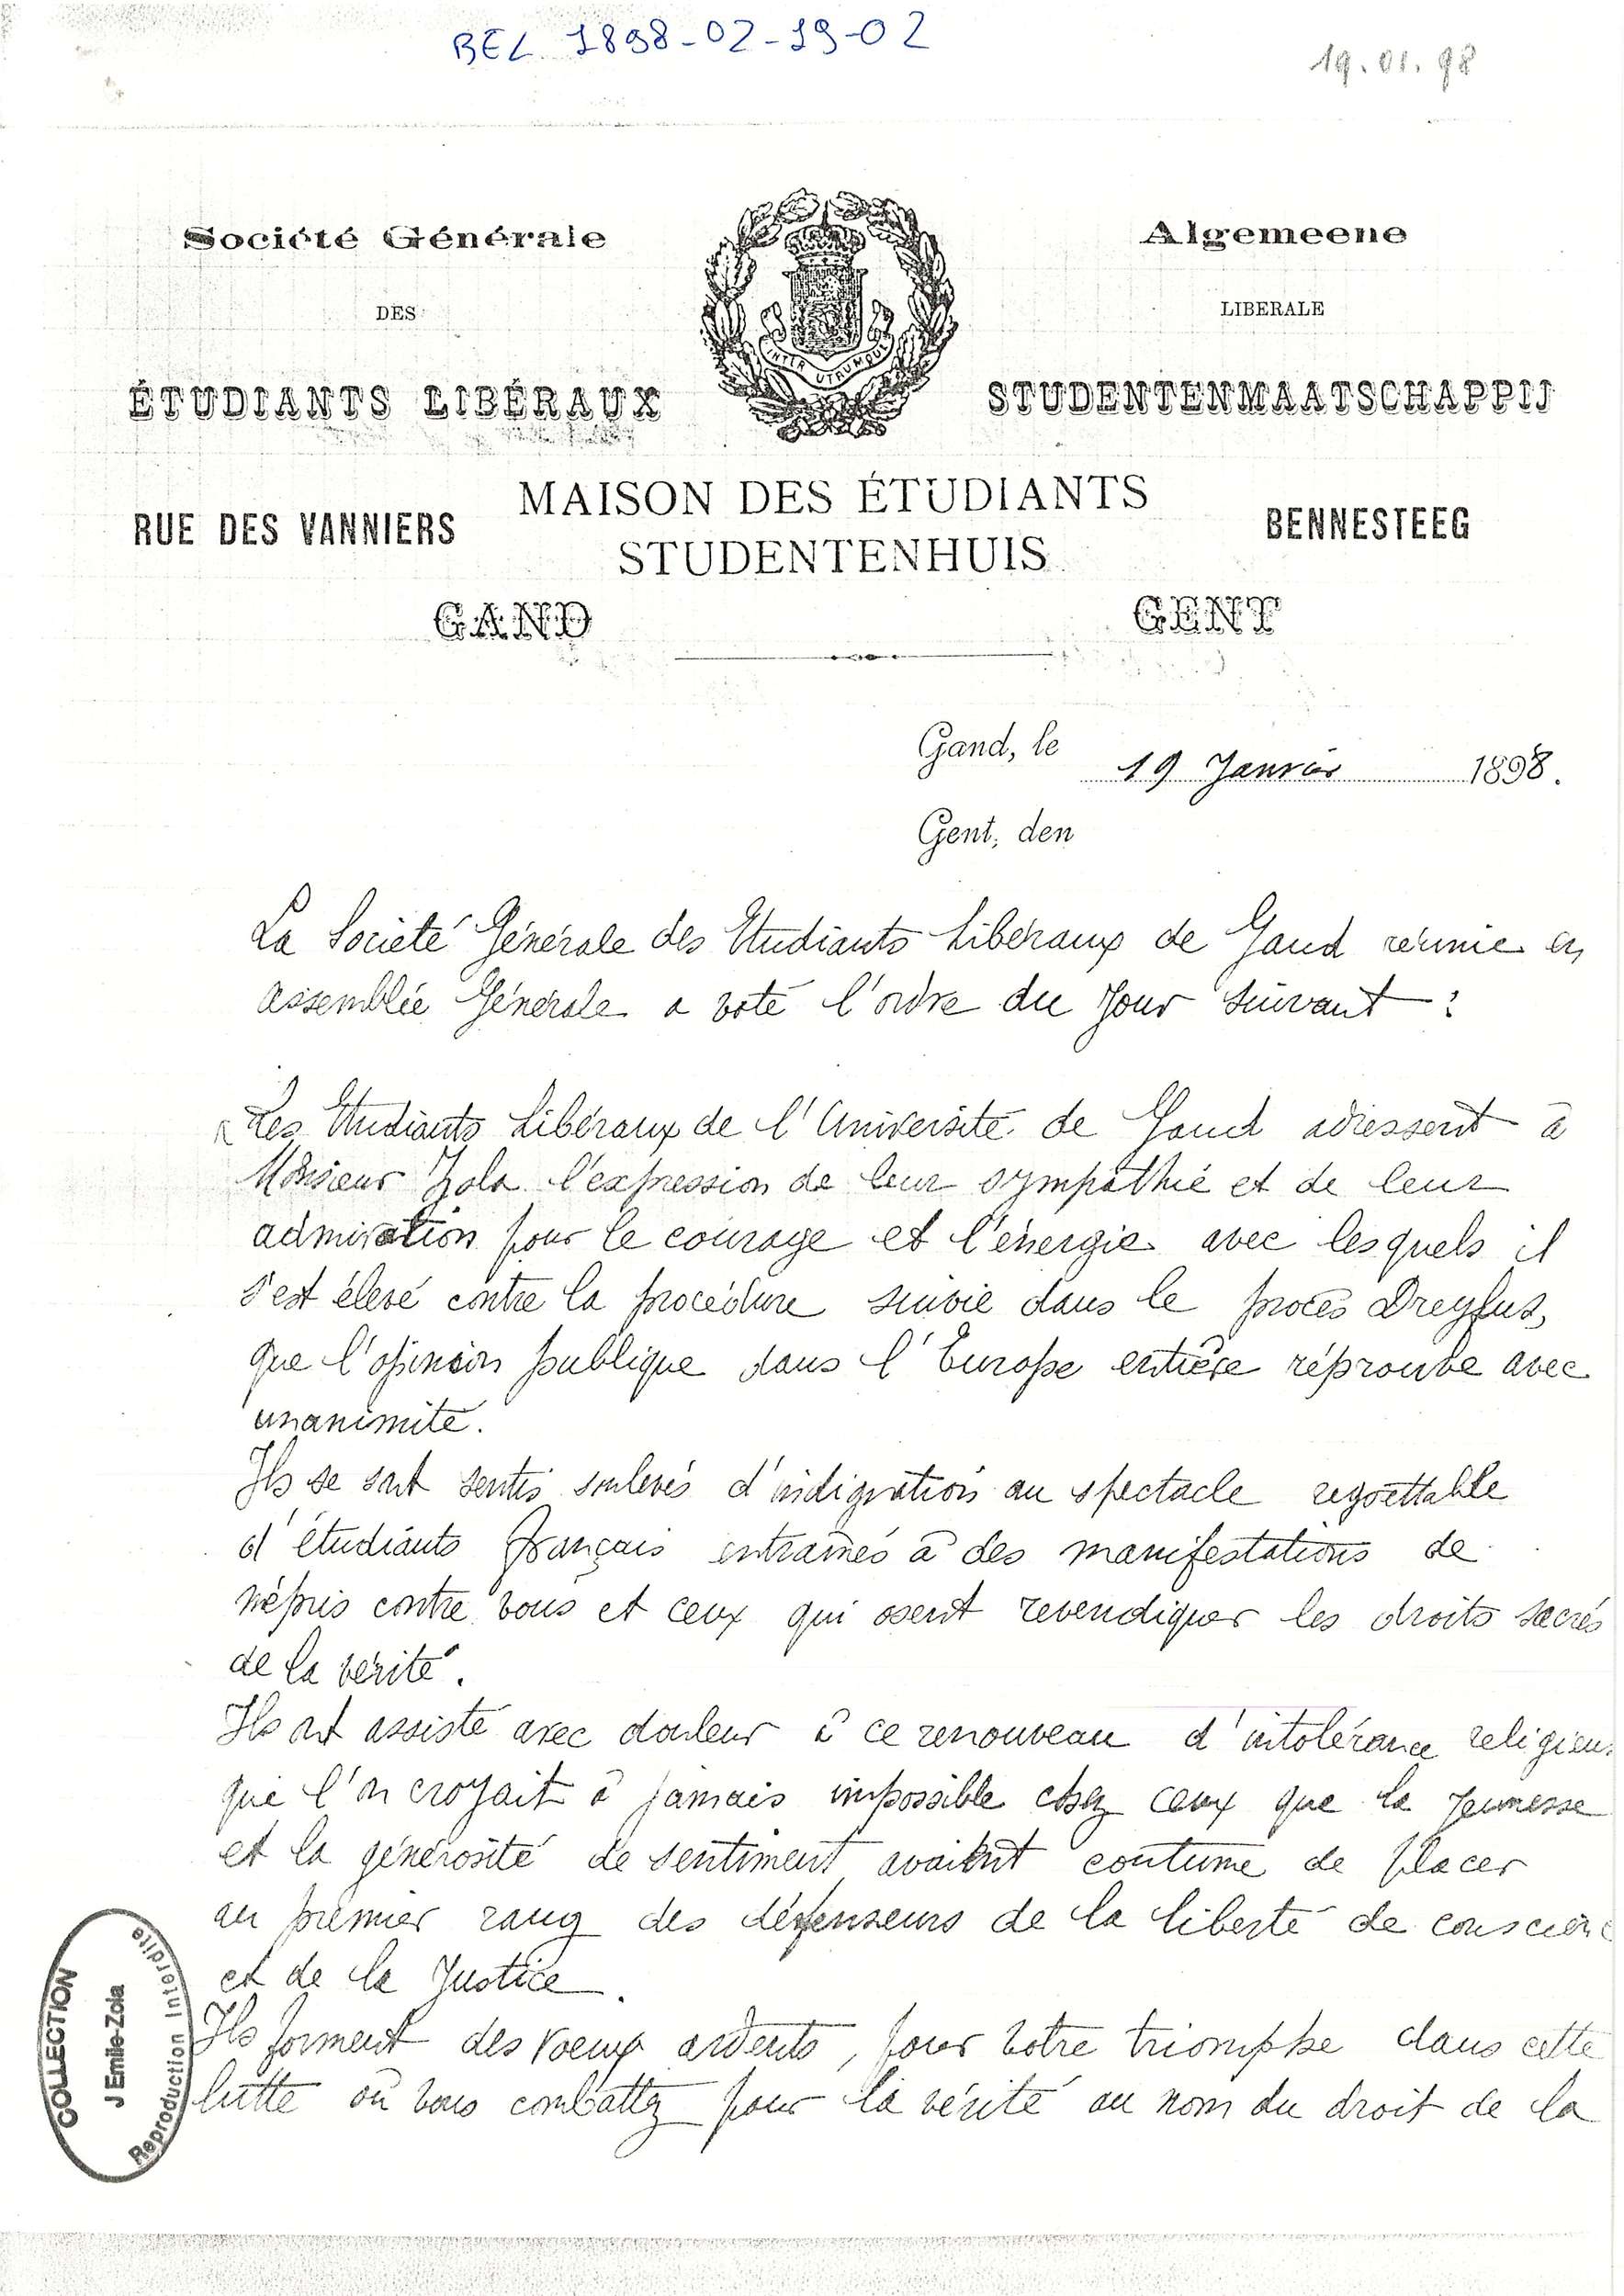 BEL 1898-02-19-02
19.01.98
Société Générale
DES
ÉTUDIANTS LIBÉRAUX
INTER UTRUMQUE
Algemeene
LIBERALE
STUDENTENMAATSCHAPPIJ
RUE DES VANNIERS
MAISON DES ÉTUDIANTS
STUDENTENHUIS
BENNESTEEG
GAND
GENT
Gand, le 19 Janvier 1898.
Gent, den
La Société Générale des Etudiants Libéraux de Gand réunie en
assemblée Générale a voté l'ordre du Jour suivant :
« Les Etudiants Libéraux de l'Université de Gand adressent à
Monsieur Zola l'expression de leur sympathie et de leur
admiration pour le courage et l'énergie avec lesquels il
s'est élevé contre la procédure suivie dans le procès Dreyfus,
que l'opinion publique dans l'Europe entière réprouve avec
unanimité.
Ils se sont sentis soulevés d'indignation au spectacle regrettable
d'étudiants français entraînés à des manifestations de
mépris contre vous et ceux qui osent revendiquer les droits sacrés
de la vérité.
Ils ont assisté avec douleur à ce renouveau d'intolérance religieus
que l'on croyait à jamais impossible chez ceux que la Jeunesse
et la générosité de sentiment avaient coutume de placer
au premier rang des défenseurs de la liberté de conscienc
et de la Justice.
Ils forment des voeux ardents, pour votre triomphe dans cette
lutte où vous combattez pour la vérité au nom du droit de la
COLLECTION
J Emile-Zola
Reproduction Interdite